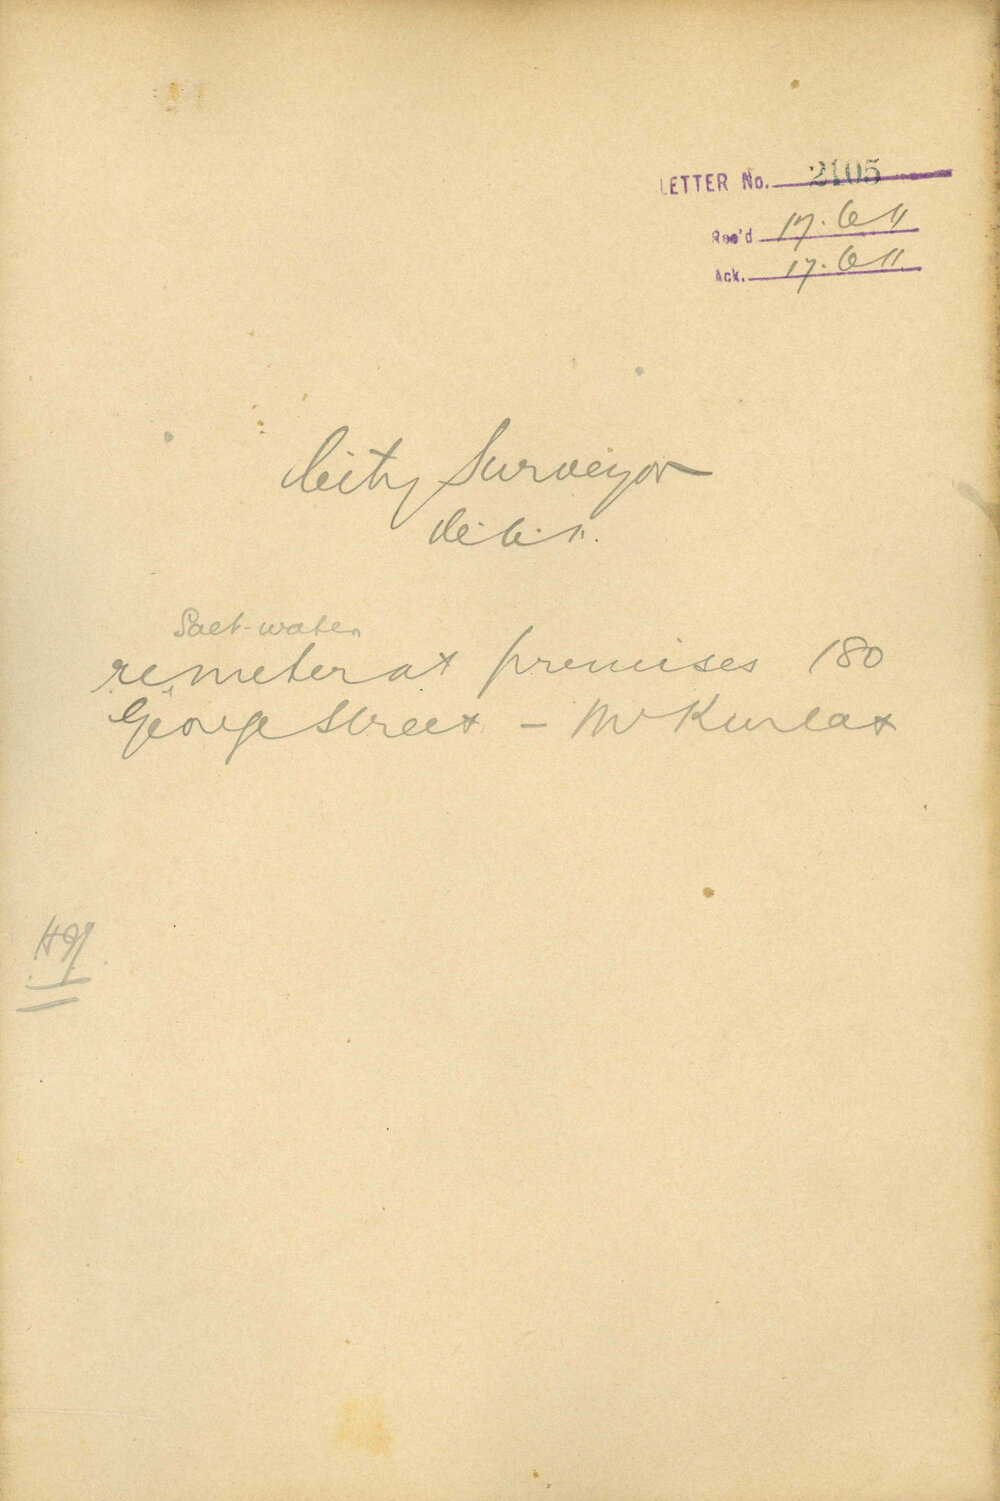 LETTER No. 2105
Rec'd 17.6.11
Ack. 17.6.11
City Surveyor
Salt-water
re meter at premises 180
George Street – Mr